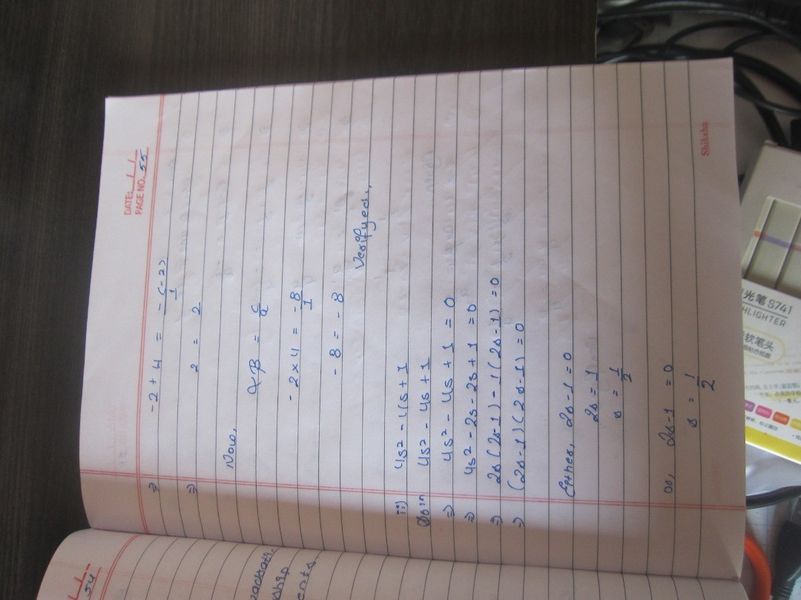 DATE: / /
PAGE NO. 55
⇒ -2 + 4 = -(-2)/1
⇒ 2 = 2
Now,
αβ = c/a
-2 × 4 = -8/1
-8 = -8
Verifyed.,
ii) 4s² - 4s + 1
Soln 4s² - 4s + 1
⇒ 4s² - 4s + 1 = 0
⇒ 4s² - 2s - 2s + 1 = 0
⇒ 2s(2s-1) - 1(2s-1) = 0
⇒ (2s-1)(2s-1) = 0
Either, 2s - 1 = 0
2s = 1
s = 1/2
or, 2s-1 = 0
s = 1/2
Shiksha
54
ents.
光笔 S741
HLIGHTER
软笔头